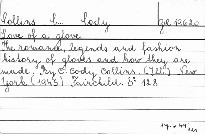 Collins C. Cody
Gd 19620
Love of a glove
The romance, legends and fashion
history of gloves and how they are
made. By C. Cody Collins. (Ill.) New
York (1945) Fairchild. 8° 128